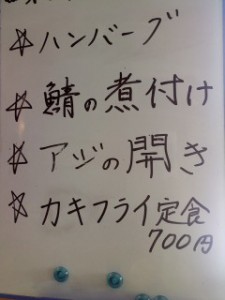 ☆ハンバーグ
☆鯖の煮付け
☆アジの開き
☆カキフライ定食
700円